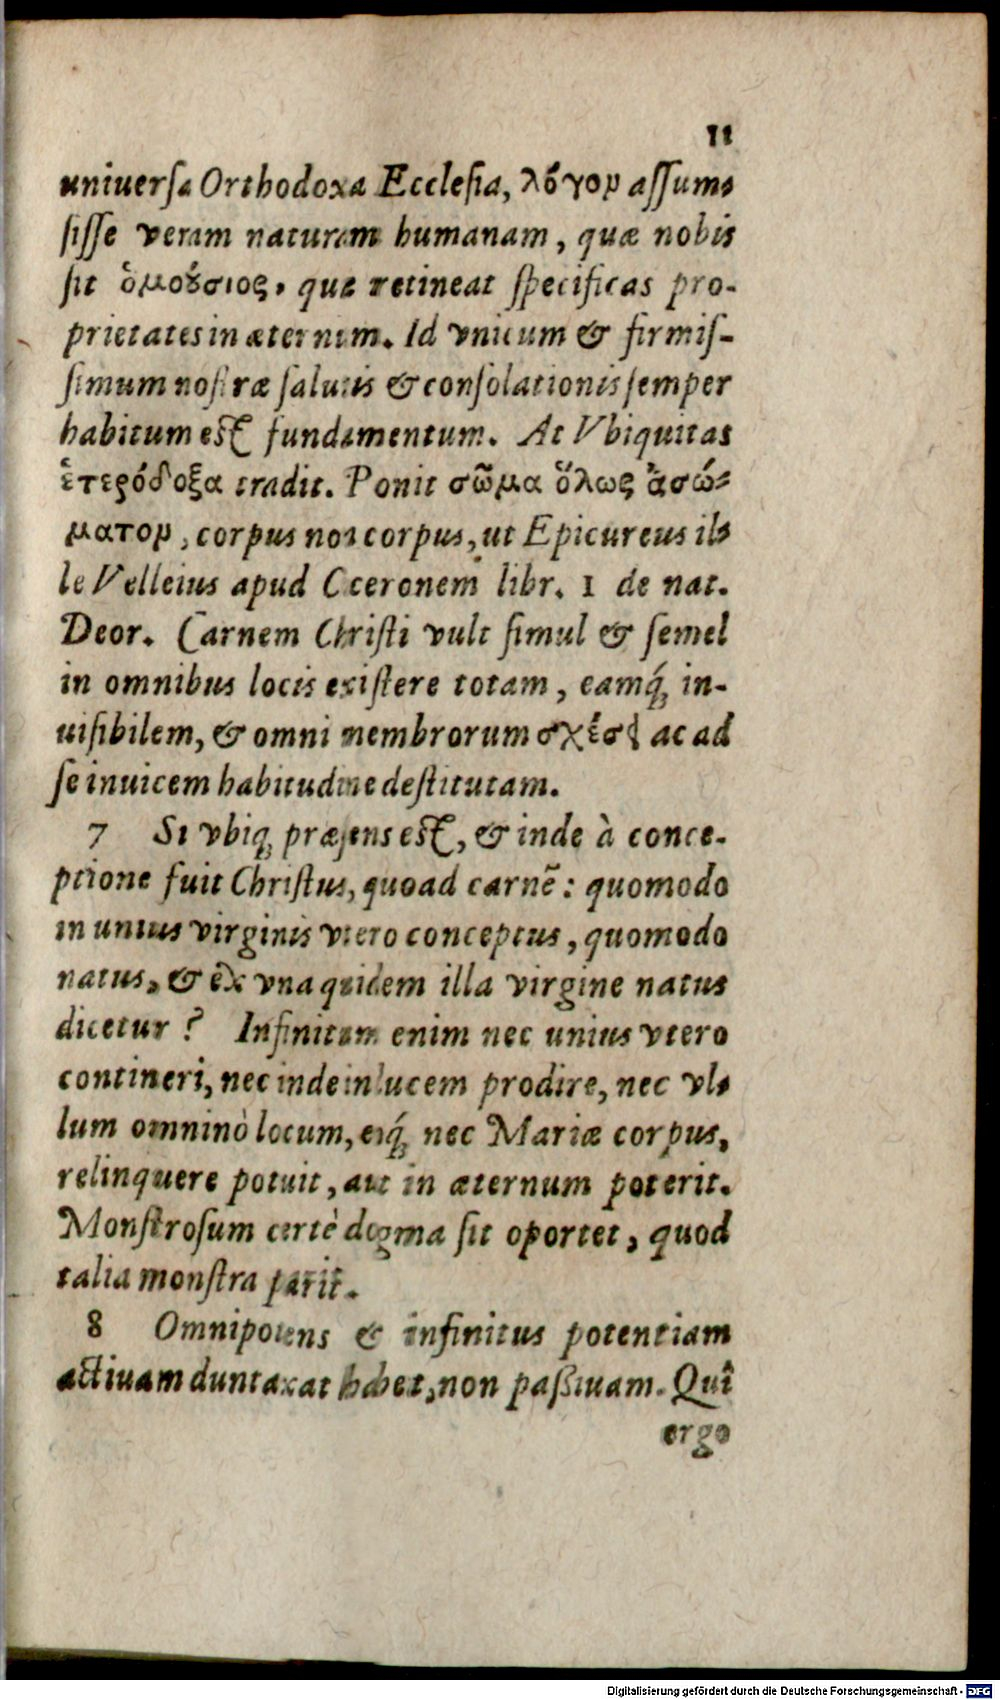 11
uniuersa Orthodoxa Ecclesia, λόγον assum-
sisse veram naturam humanam, quæ nobis
sit ὁμούσιος, quæ retineat specificas pro-
prietates in æternum. Id vnicum & firmis-
simum nostræ salutis & consolationis semper
habitum est fundamentum. At Vbiquitas
ἑτερόδοξα tradit. Ponit σῶμα ὅλως ἀσώ-
ματον, corpus non corpus, ut Epicureus il-
le Velleius apud Ciceronem libr. 1 de nat.
Deor. Carnem Christi vult simul & semel
in omnibus locis existere totam, eamq́; in-
uisibilem, & omni membrorum σχέσει ac ad
se inuicem habitudine destitutam.
7 Si vbiq; præsens est, & inde à conce-
ptione fuit Christus, quoad carnē: quomodo
in unius virginis vtero conceptus, quomodo
natus, & ex vna quidem illa virgine natus
dicetur? Infinitam enim nec unius vtero
contineri, nec inde in lucem prodire, nec vl-
lum omninò locum, eiq́; nec Mariæ corpus,
relinquere potuit, aut in æternum poterit.
Monstrosum certè dogma sit oportet, quod
talia monstra parit.
8 Omnipotens & infinitus potentiam
actiuam duntaxat habet, non paßiuam. Quî
ergo
Digitalisierung gefördert durch die Deutsche Forschungsgemeinschaft - DFG